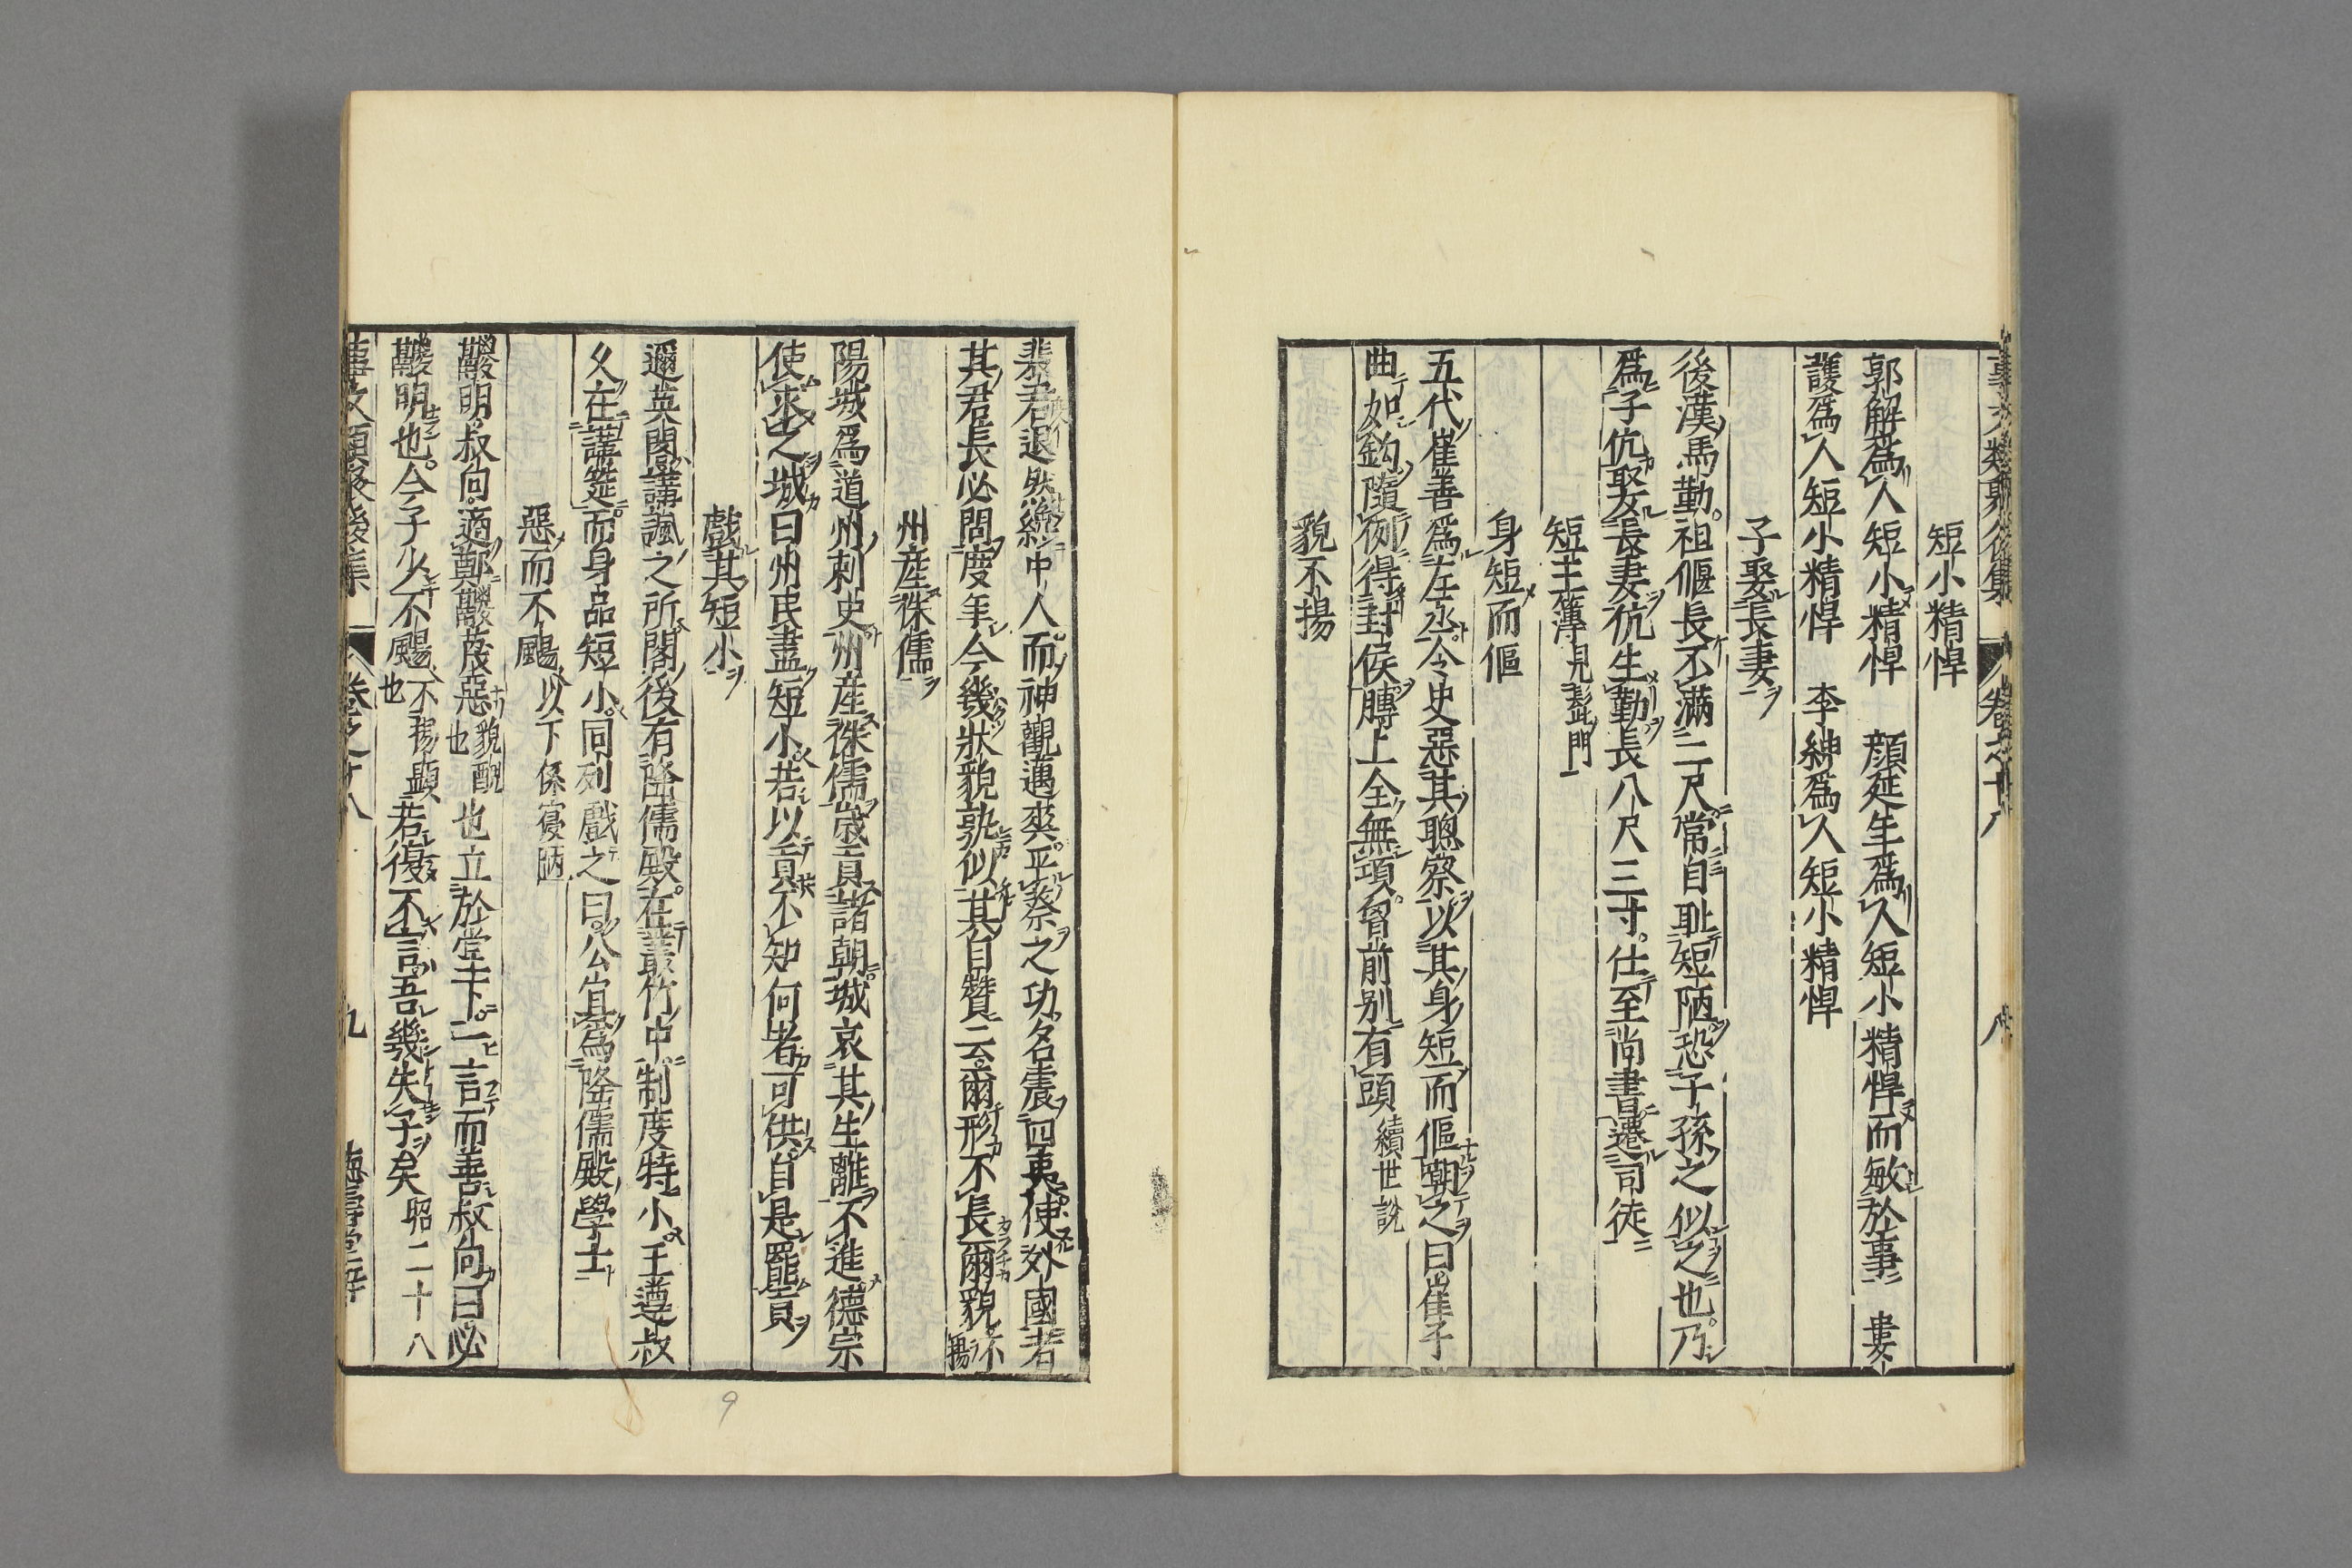 事文類聚後集 卷之十八 八
短小精悍
郭解爲人短小精悍 顔延年爲人短小精悍而敏於事 婁
護爲人短小精悍 李紳爲人短小精悍
子娶長妻
後漢馬勤祖偃長不滿二尺常自耻短陋恐子孫之似之也乃
爲子伉娶長妻伉生勤長八尺三寸仕至尚書遷司徒
短主簿見髭門
身短而傴
五代崔善爲左丞令史惡其聰察以其身短而傴嘲之曰崔子
曲如鈎隨例得封侯膊上全無項胷前别有頭續世說
貌不揚
裴君退然纔中人而神觀邁爽平蔡之功名震四夷使外國者
其君長必問度年今幾狀貌孰似其自贊云爾形不長爾貌不揚
州産侏儒
陽城爲道州刺史州産侏儒歳貢諸朝城哀其生離不進德宗
使求之城曰州民盡短小若以貢不知何者可供自是罷貢
戲其短小
邇英閣講諷之所閣後有隆儒殿在叢竹中制度特小王遵叔
久在講筵而身品短小同列戲之曰公宜爲隆儒殿學士
惡而不颺以下係寢陋
鬷明叔向適鄭鬷蔑惡貌醜也也立於堂下一言而善叔向曰必
鬷明也今子少不颺不揚顯也若復不言吾幾失子矣昭二十八
事文類聚後集 卷之十八 九